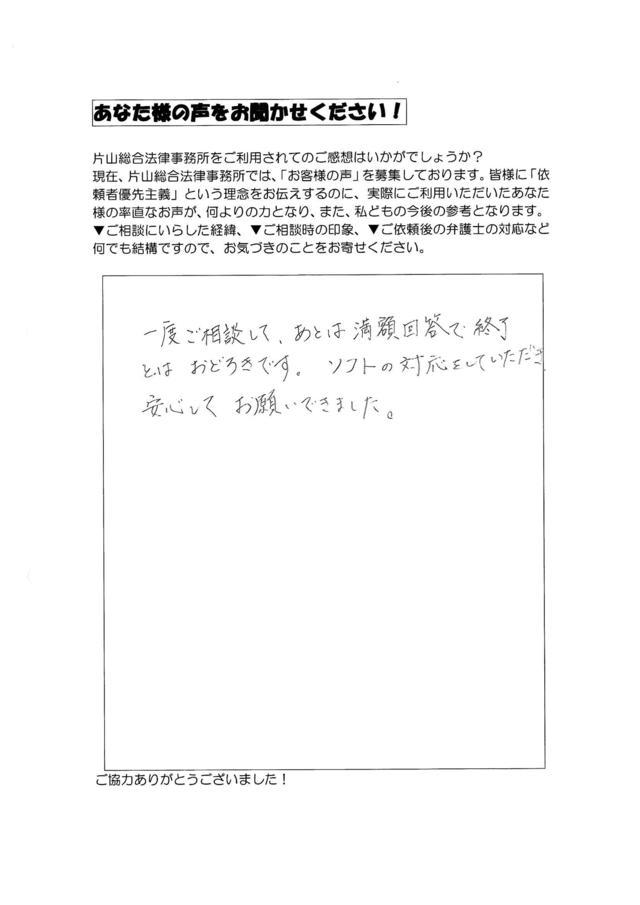 あなた様の声をお聞かせください！
片山総合法律事務所をご利用されてのご感想はいかがでしょうか？
現在、片山総合法律事務所では、「お客様の声」を募集しております。皆様に「依
頼者優先主義」という理念をお伝えするのに、実際にご利用いただいたあなた
様の率直なお声が、何よりの力となり、また、私どもの今後の参考となります。
▼ご相談にいらした経緯、▼ご相談時の印象、▼ご依頼後の弁護士の対応など
何でも結構ですので、お気づきのことをお寄せください。
一度ご相談して、あとは満額回答で終了
とは おどろきです。 ソフトの対応をしていただき
安心して お願いできました。
ご協力ありがとうございました！